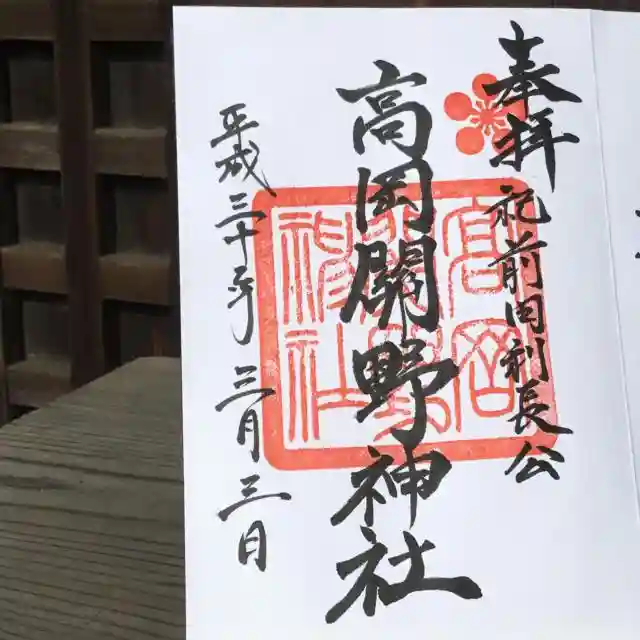 奉拝 祀前田利長公
高岡開野神社
平成三十年 三月三日
高岡開野神社